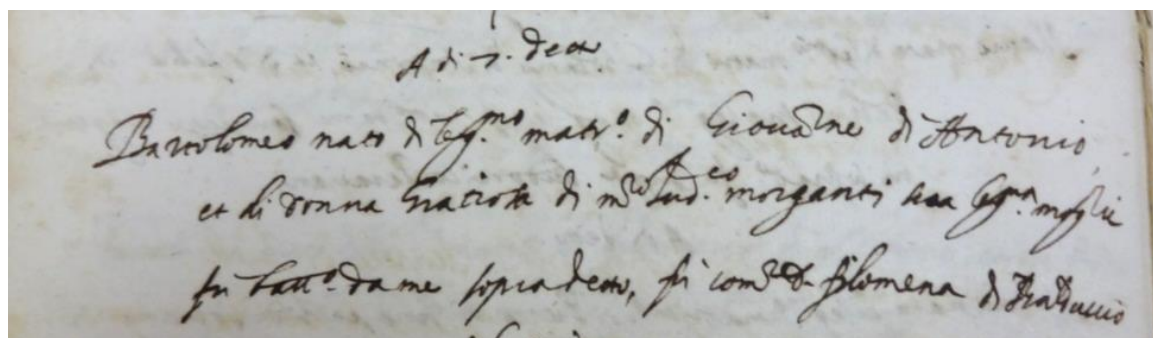 A di 7. detto
Bartolomeo nato di leg.mo matr.o di Giovãne di Antonio
et di donna Gratiosa di m.ro Lud.co morganti sua leg.ma moglie
fu batt.o da me sopradetto, fu com.e d. filomena di